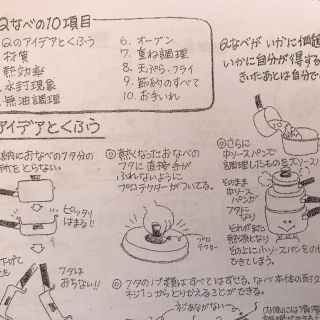 Qなべの10項目
Qのアイデアとくふう
材質
熱効率
水封現象
無油調理
6. オーブン
7. 重ね調理
8. 天ぷら、フライ
9. 節約のすべて
10. お手いれ
Qなべが いかに価値
いかに自分が得する
きいたあとは自分で
アイデアとくふう
納におなべのフタ分の
所をとらない。
ピッタリ
はまる!!
フタは
おちない!!
熱くなったおなべの
フタに直接手が
ふれないように
プロテクターがついてる。
プロ
テクター
さらに
中ソースパンで
調理したものをズンリ
そのまま
中ソース
パンが
フタに
なり
それがまた
熱源となり
その上に小ソースパンをのせ
フタのツマミ類はすべてはずせる。なべ本体の耐久
ネジ1つからとりかえることができる。
ネジあながない